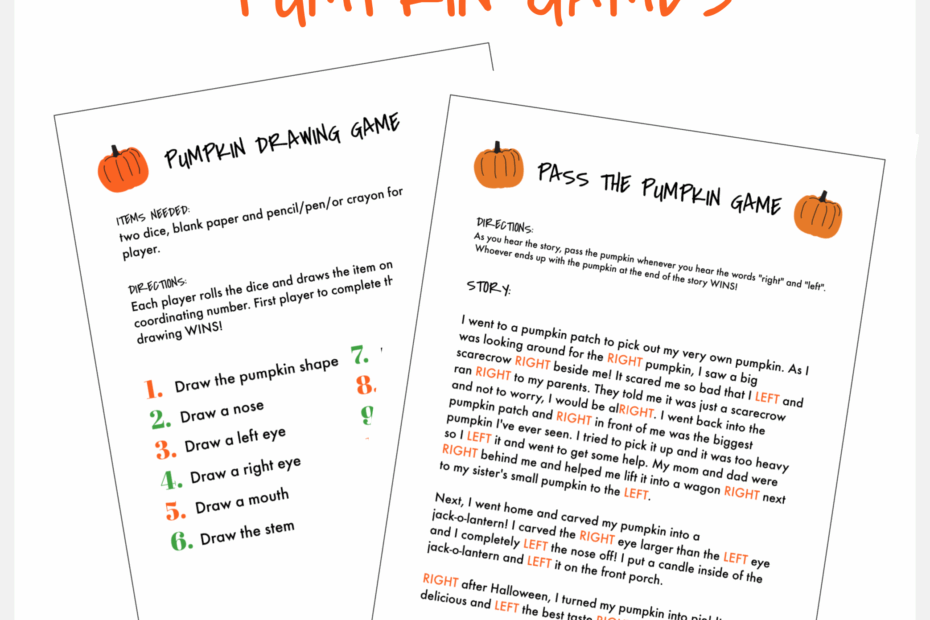 PUMPKIN GAMES
PUMPKIN DRAWING GAME
ITEMS NEEDED:
two dice, blank paper and pencil/pen/or crayon for
player.
DIRECTIONS:
Each player rolls the dice and draws the item on
coordinating number. First player to complete th
drawing WINS!
1. Draw the pumpkin shape
2. Draw a nose
3. Draw a left eye
4. Draw a right eye
5. Draw a mouth
6. Draw the stem
7.
8.
9
PASS THE PUMPKIN GAME
DIRECTIONS:
As you hear the story, pass the pumpkin whenever you hear the words "right" and "left".
Whoever ends up with the pumpkin at the end of the story WINS!
STORY:
I went to a pumpkin patch to pick out my very own pumpkin. As I
was looking around for the RIGHT pumpkin, I saw a big
scarecrow RIGHT beside me! It scared me so bad that I LEFT and
ran RIGHT to my parents. They told me it was just a scarecrow
and not to worry, I would be alRIGHT. I went back into the
pumpkin patch and RIGHT in front of me was the biggest
pumpkin I've ever seen. I tried to pick it up and it was too heavy
so I LEFT it and went to get some help. My mom and dad were
RIGHT behind me and helped me lift it into a wagon RIGHT next
to my sister's small pumpkin to the LEFT.
Next, I went home and carved my pumpkin into a
jack-o-lantern! I carved the RIGHT eye larger than the LEFT eye
and I completely LEFT the nose off! I put a candle inside of the
jack-o-lantern and LEFT it on the front porch.
RIGHT after Halloween, I turned my pumpkin into
delicious and LEFT the best taste